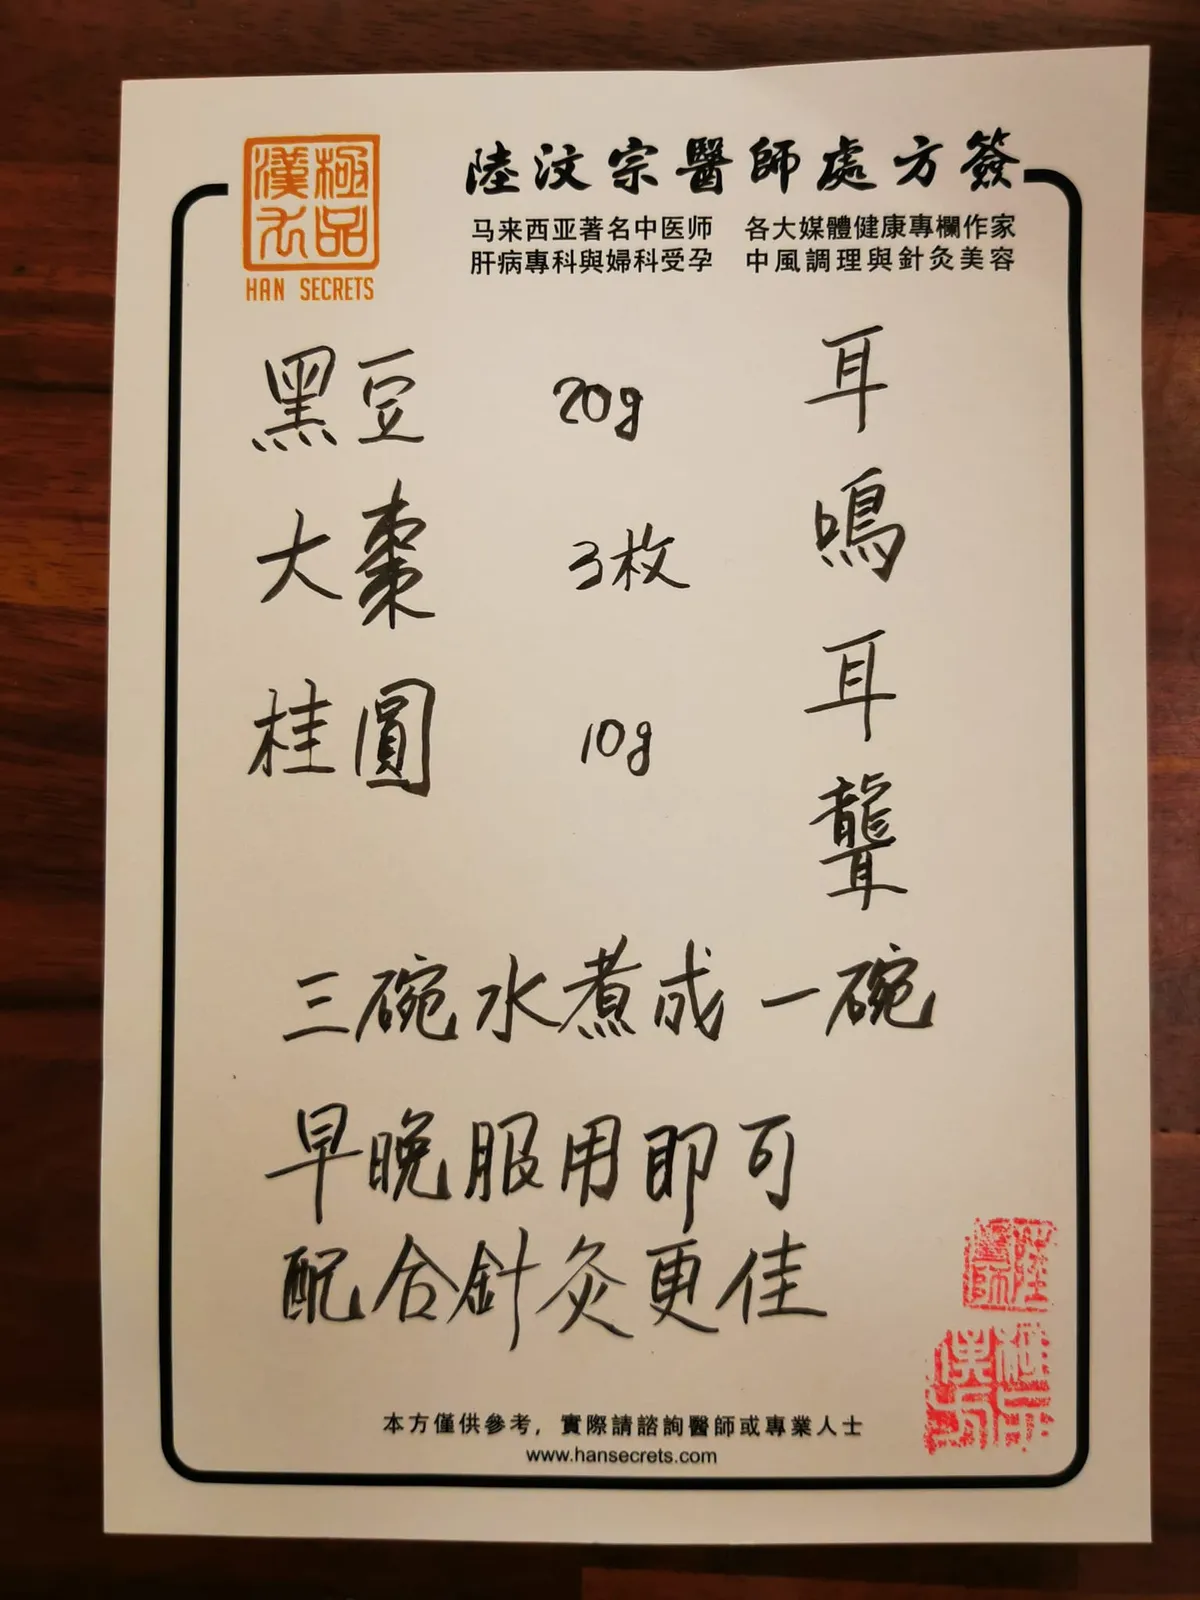 極品
漢方
HAN SECRETS
陸汶宗醫師處方簽
马来西亚著名中医师 各大媒體健康專欄作家
肝病專科與婦科受孕 中風調理與針灸美容
耳鳴耳聾
黑豆 20g
大棗 3枚
桂圓 10g
三碗水煮成一碗
早晚服用即可
配合針灸更佳
陸
醫師
極品
漢方
本方僅供參考，實際請諮詢醫師或專業人士
www.hansecrets.com